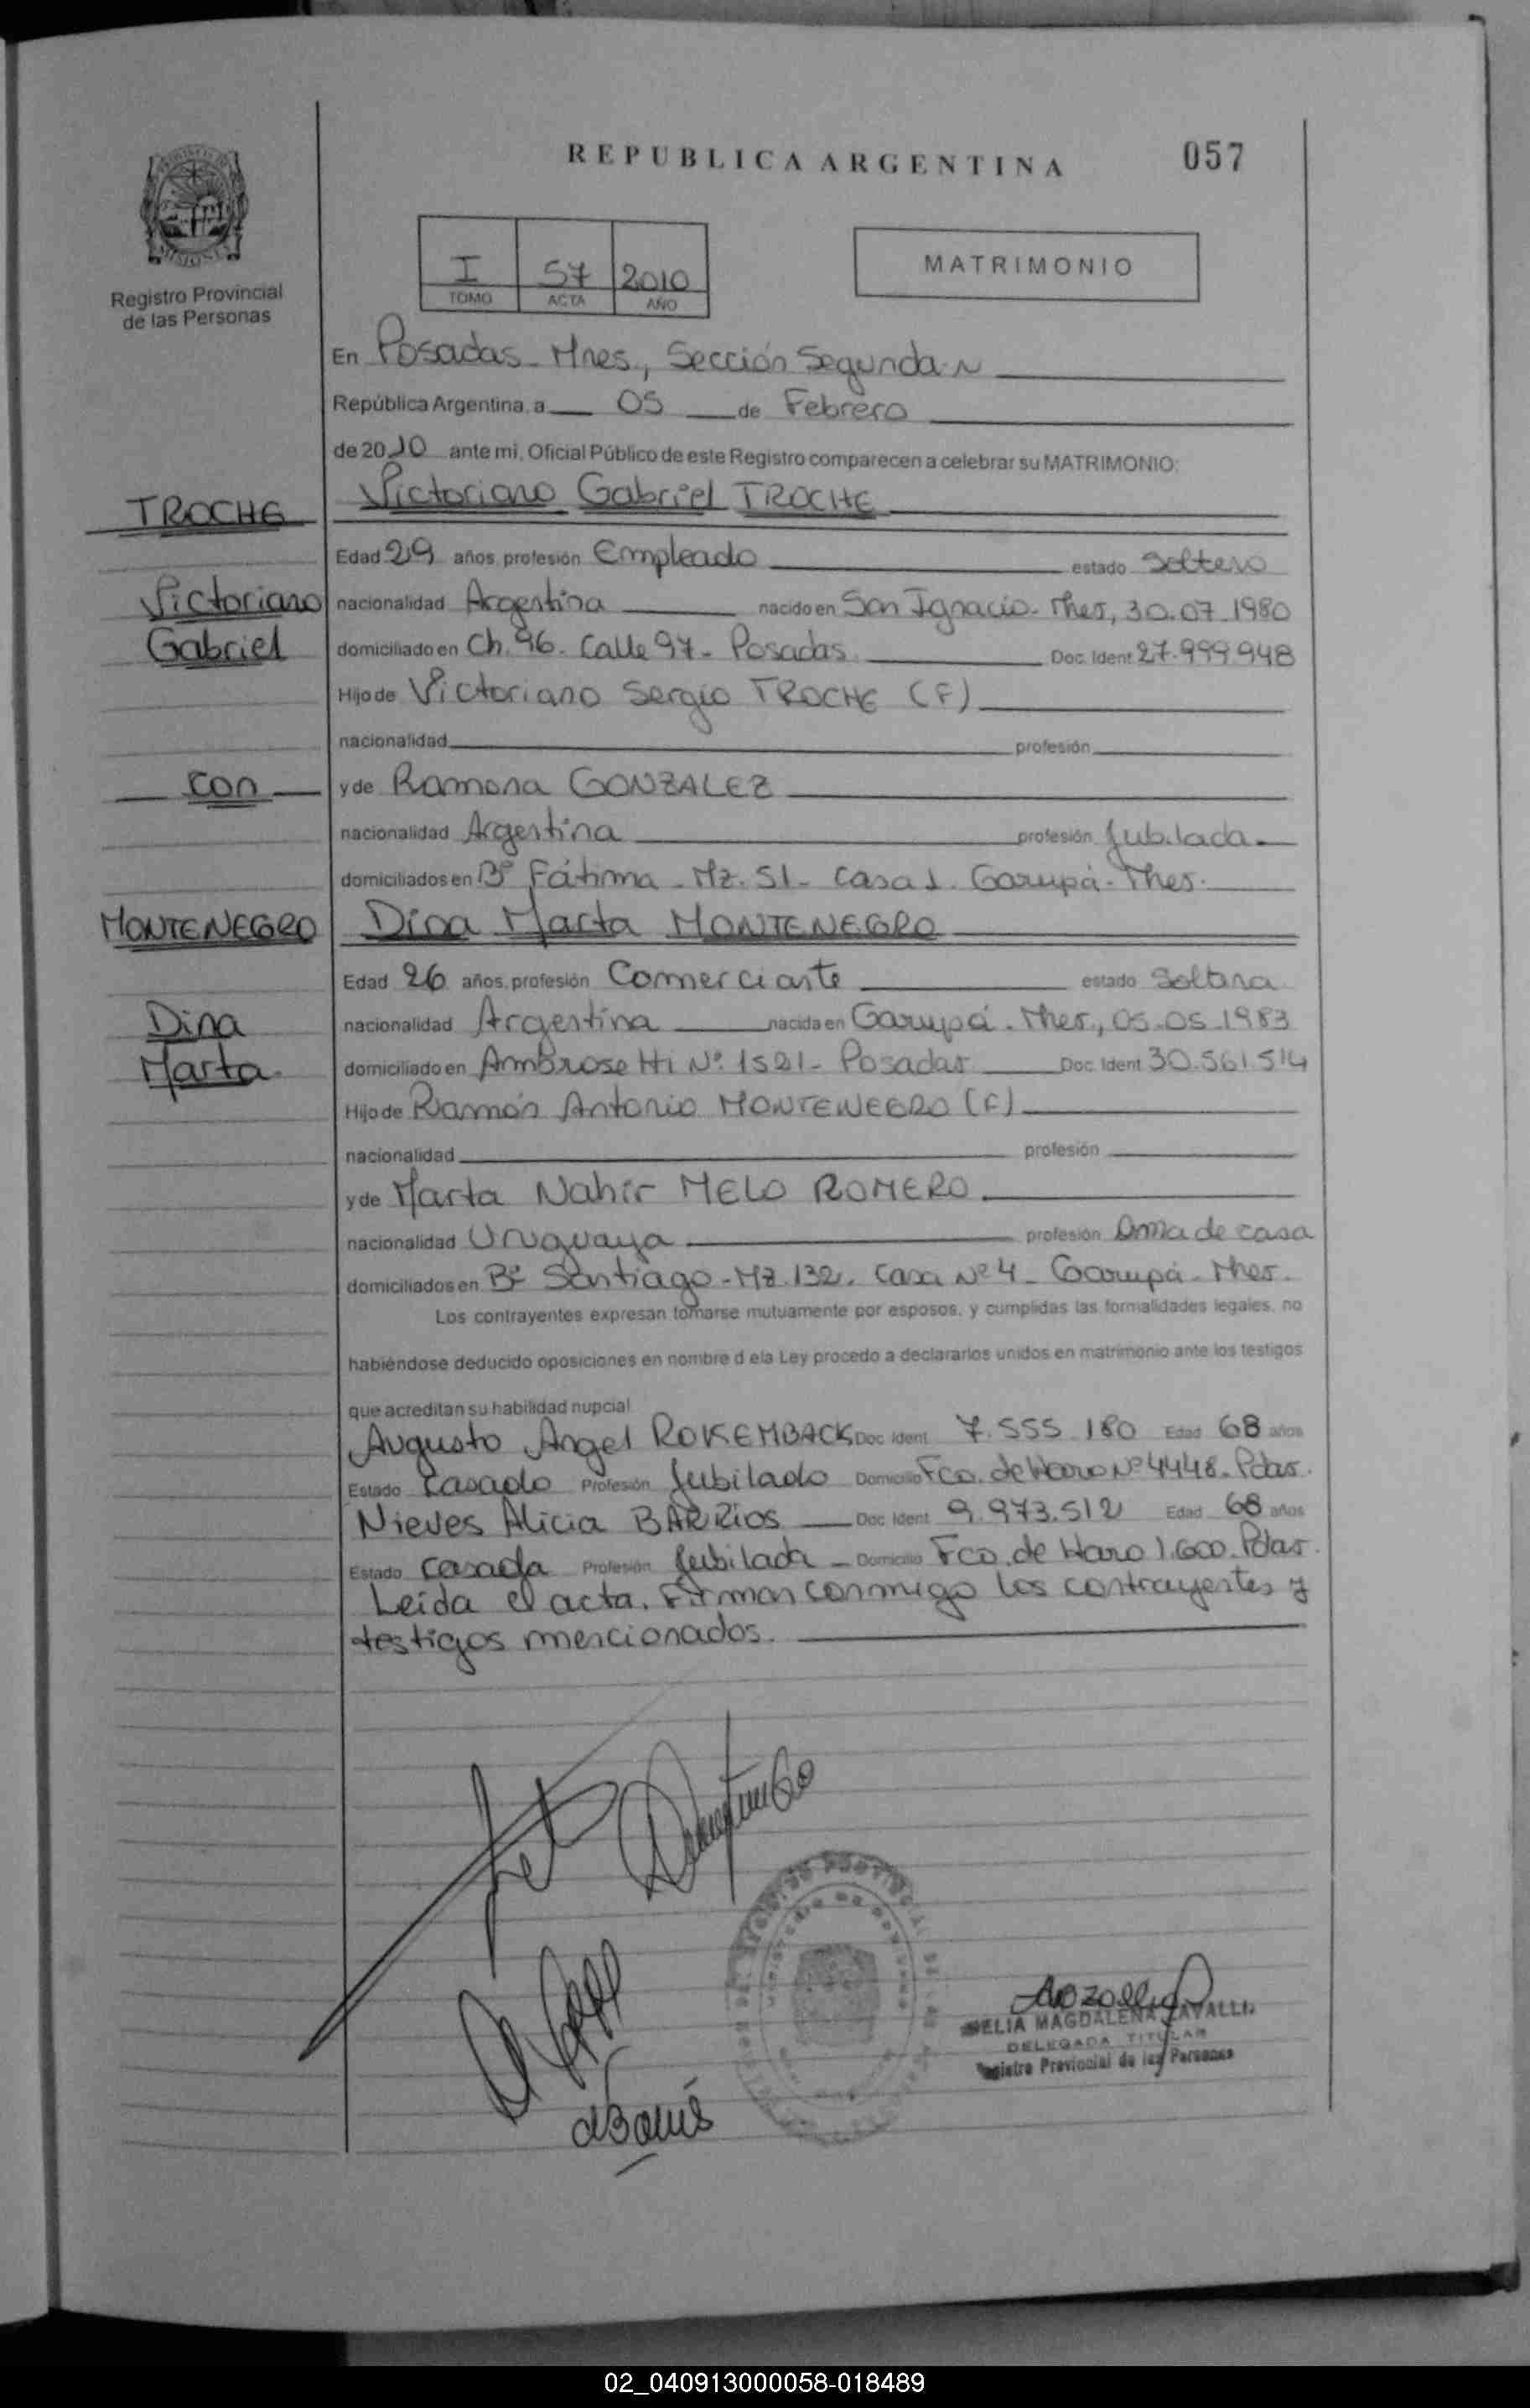 REPUBLICA ARGENTINA
057
Registro Provincial
de las Personas
I 57 2010
TOMO ACTA AÑO
MATRIMONIO
En Posadas - Mnes, Sección Segunda
República Argentina, a 05 de Febrero
de 2010 ante mi, Oficial Público de este Registro comparecen a celebrar su MATRIMONIO:
TROCHE
Victoriano Gabriel TROCHE
Edad 29 años, profesión Empleado estado Soltero
Victoriano
nacionalidad Argentina nacido en San Ignacio - Mnes, 30.07.1980
Gabriel
domiciliado en Ch. 96 - Calle 97 - Posadas Doc. Ident 27.999.948
Hijo de Victoriano Sergio TROCHE (F)
nacionalidad profesión
con
y de Ramona GONZALEZ
nacionalidad Argentina profesión Jubilada
domiciliados en Bº Fátima - Mz. 51 - Casa 1. Garupá - Mnes.
MONTENEGRO
Dina Marta MONTENEGRO
Edad 26 años, profesión Comerciante estado Soltera
Dina
nacionalidad Argentina nacida en Garupá - Mnes, 05.05.1983
Marta
domiciliado en Ambrosetti Nº 1521 - Posadas Doc. Ident 30.561.514
Hijo de Ramón Antonio MONTENEGRO (F)
nacionalidad profesión
y de Marta Nahir MELO ROMERO
nacionalidad Uruguaya profesión Ama de casa
domiciliados en Bº Santiago - Mz. 132. Casa Nº 4 - Garupá - Mnes.
Los contrayentes expresan tomarse mutuamente por esposos, y cumplidas las formalidades legales, no
habiéndose deducido oposiciones en nombre d ela Ley procedo a declararlos unidos en matrimonio ante los testigos
que acreditan su habilidad nupcial
Augusto Angel ROKEMBACK Doc Ident 7.555.180 Edad 68 años
Estado Casado Profesión Jubilado Domicilio Fco. de Haro Nº 4448 - Pdas.
Nieves Alicia BARRIOS Doc Ident 9.973.512 Edad 68 años
Estado Casada Profesión Jubilada - Domicilio Fco. de Haro 1.600 - Pdas.
Leída el acta. Firman conmigo los contrayentes y
testigos mencionados.
MAGDALENA ZAVALLI
DELEGADA TITULAR
Registro Provincial de las Personas
02_040913000058-018489